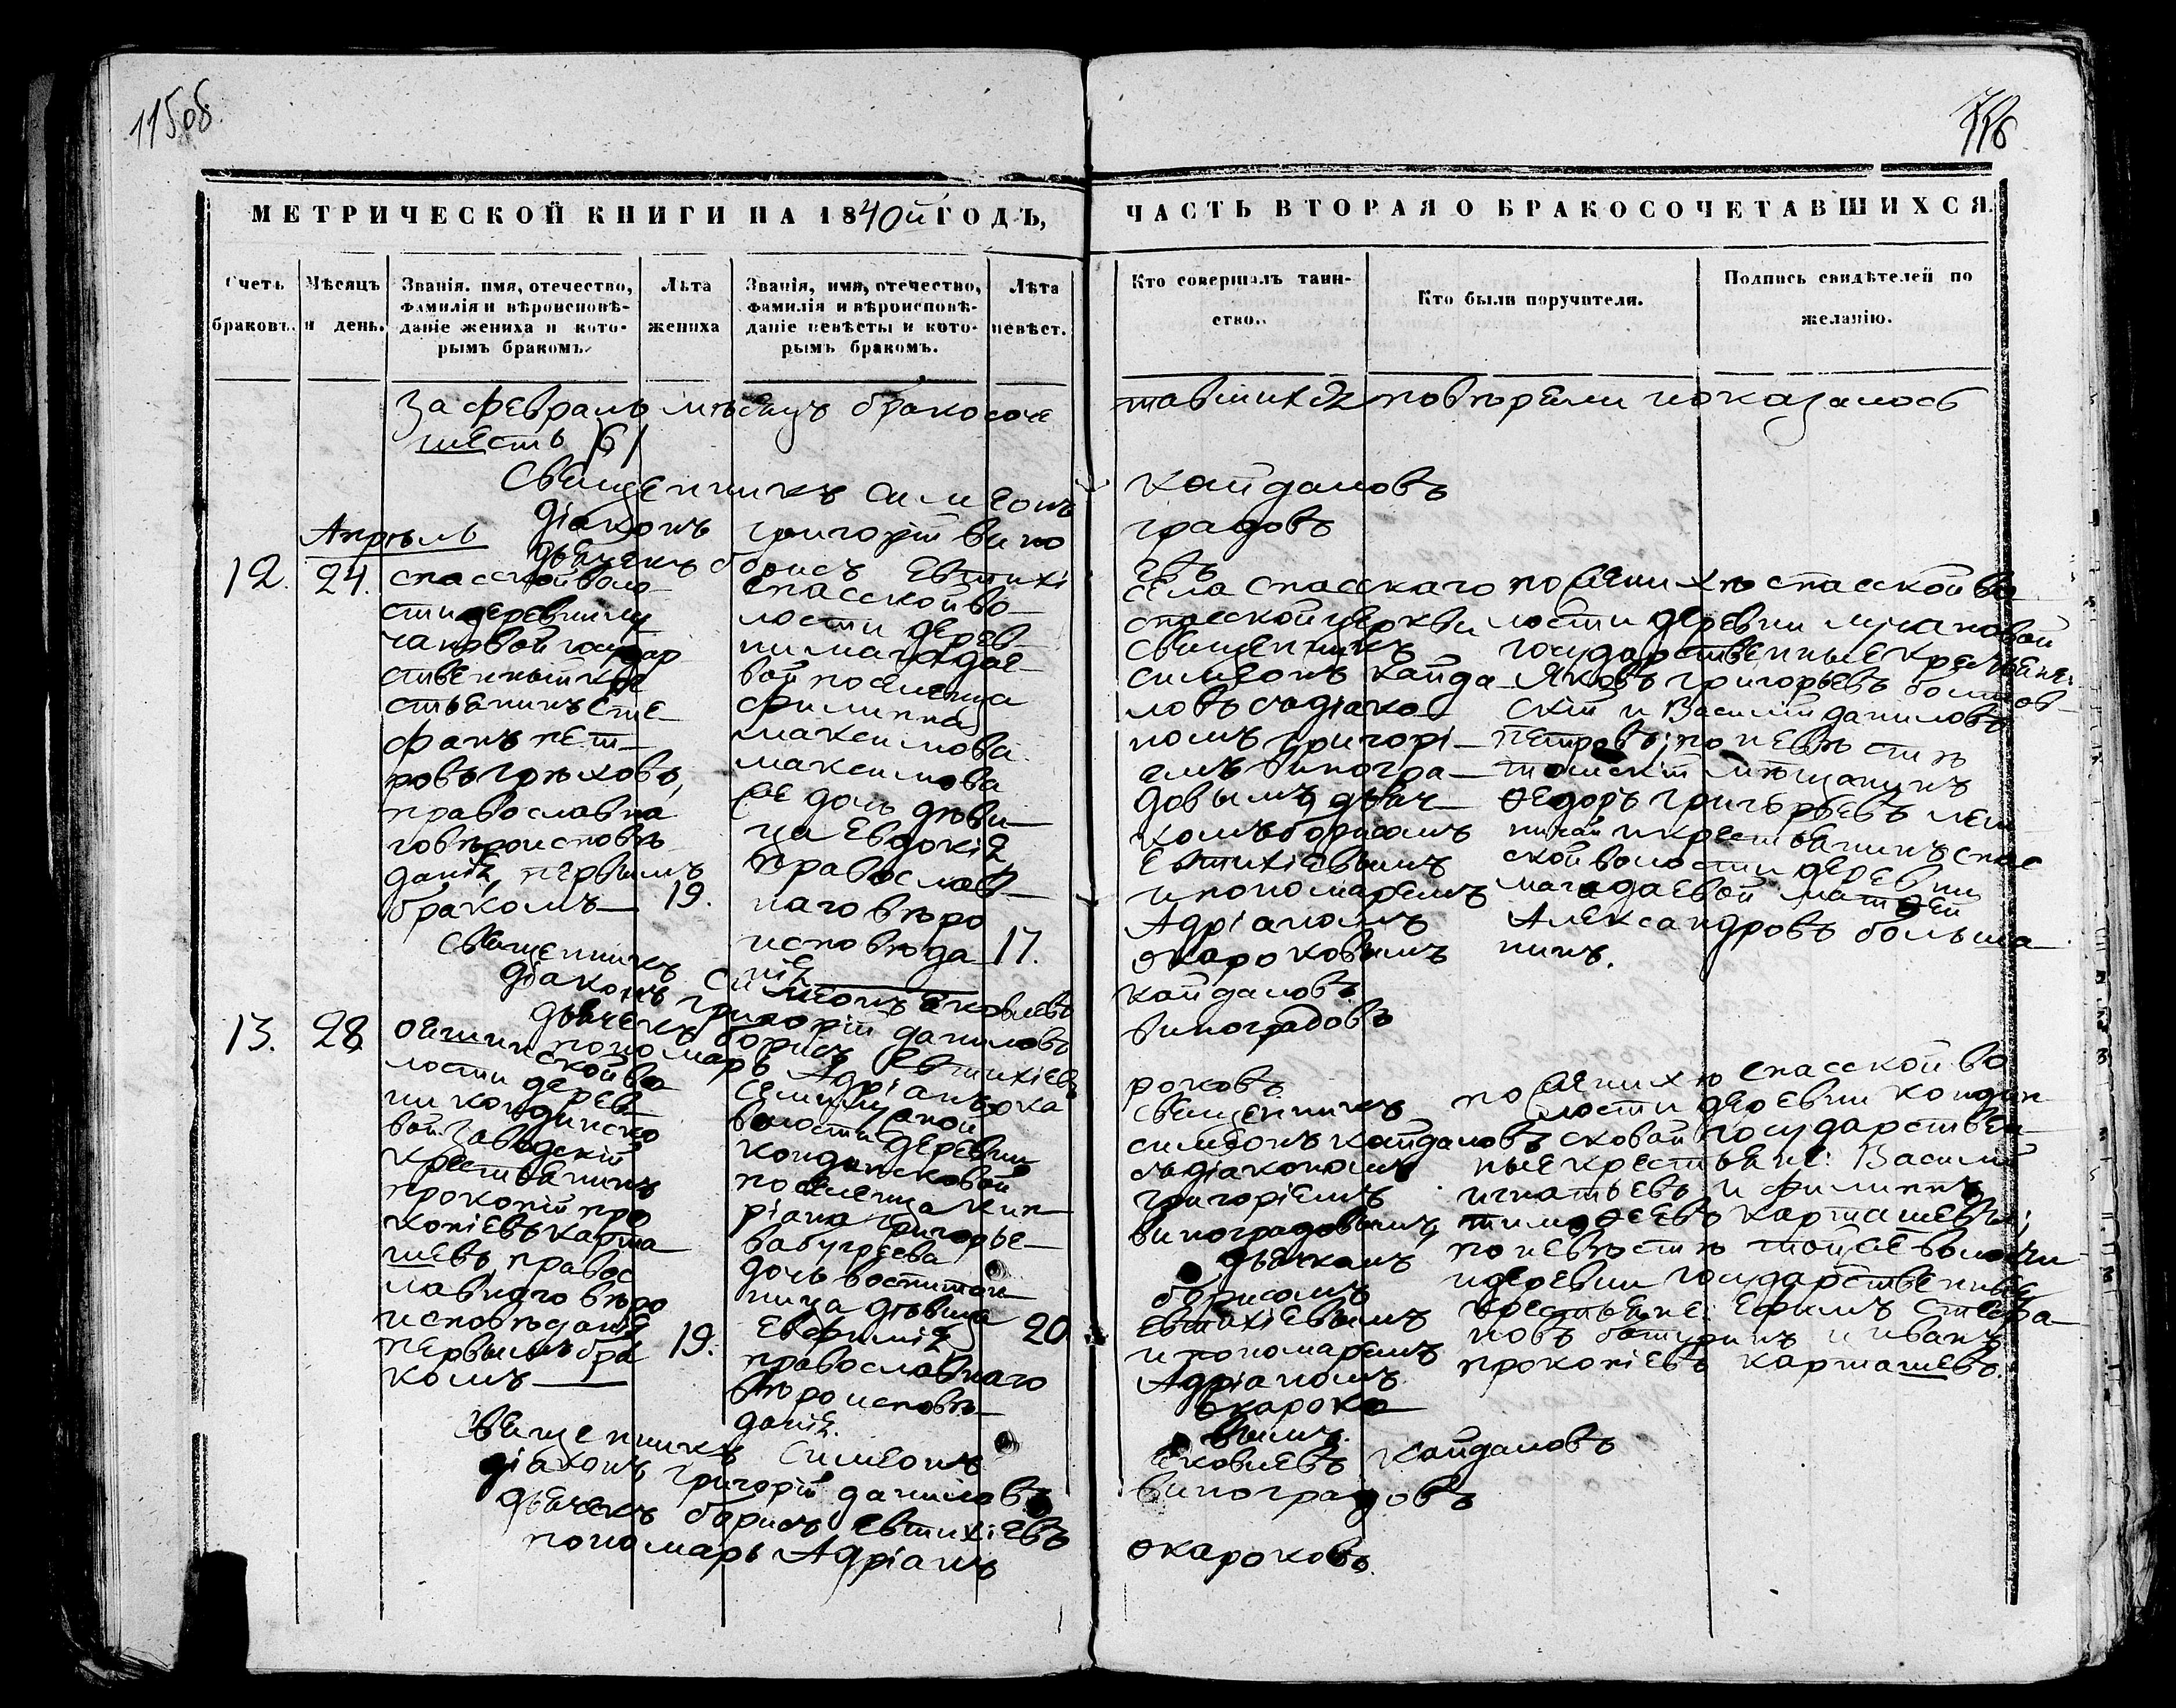 115об.
116
МЕТРИЧЕСКОЙ КНИГИ НА 1840й ГОДЪ,
ЧАСТЬ ВТОРАЯ О БРАКОСОЧЕТАВШИХСЯ.
Счетъ браковъ.
Мѣсяцъ и день.
Званія, имя, отечество,
фамилія и вѣроисповѣ-
даніе жениха и кото-
рымъ бракомъ.
Лѣта
жениха
Званія, имя, отечество,
фамилія и вѣроисповѣ-
даніе невѣсты и кото-
рымъ бракомъ.
Лѣта
невѣст.
Кто совершалъ таин-
ство.
Кто были поручители.
Подпись свидѣтелей по
желанію.
За февраль мѣсяцъ бракосоче
тавшихся по вѣрели показалось
шесть /6/
Священникъ Симеонъ
Кайдаловъ
Діаконъ Григорій Вино
градовъ
Дьячекъ Борисъ Евтихі
евъ
Апрѣль
12.
24.
Спасской воло-
сти деревни Лу
чановой государ
ственный кре
стьянинъ Сте-
фанъ Пет-
ровъ Грѣховъ,
православна
го вѣроисповѣ
данія, первымъ
бракомъ
19.
Спасской во-
лости дерев-
ни Магадае-
вой поселенца
Филиппа
Максимова
Максимова
же дочь дѣви-
ца Евдокія
Православ-
наго вѣро
исповѣда
нія
17.
Села Спасскаго
Спасской церкви
Священникъ
Симеонъ Кайда-
ловъ съ діако-
номъ Григорі-
емъ Виногра-
довымъ дьяч-
комъ Борисомъ
Евтихіевымъ
и пономаремъ
Адріаномъ
Окароковымъ
по женихѣ Спасской во
лости деревни Лучановой
государственные крестьяне:
Яковъ Григорьевъ Болтов-
скій и Василій Даниловъ
Петровъ; по невѣстѣ
томскій мѣщанинъ
Ѳедоръ Григорьевъ
и крестьянинъ Спас
ской волости деревни
Магадаевой Матѳей
Александровъ Больша-
нинъ.
Священникъ Симеонъ Яковлевъ
Кайдаловъ
Діаконъ Григорій Даниловъ
Виноградовъ
Дьячекъ Борисъ Евтихіевъ
Пономарь Адріанъ Ока
роковъ
13.
28.
во
лости дерев-
ни Кондинско
вой заводскій
крестьянинъ
Прокопій Про
копіевъ Карта
шевъ, правос
лавнаго вѣро
исповѣданія
первымъ бра
комъ
19.
Семилужной
волости деревни
Кондинсковой
поселенца Кип
ріана Григорье-
ва
дочь воспитан
ница дѣвица
Евфимія
православнаго
вѣроисповѣ-
данія.
20.
Священникъ
Симеонъ Кайдаловъ
съ діакономъ
Григоріемъ
Виноградовымъ,
дьячкомъ
Борисомъ
Евтихіевымъ
и пономаремъ
Адріаномъ
Окароко-
вымъ.
по женихѣ Спасской во
лости деревни Кондин
сковой государствен-
ные крестьяне: Василій
Игнатьевъ и Филиппъ
Тимоѳеевъ Карташевы;
по невѣстѣ той же волости
и деревни государственные
крестьяне: Ефимъ Стефа-
новъ Батуринъ и Иванъ
Прокопіевъ Карташевъ.
Священникъ Симеонъ
Яковлевъ Кайдаловъ
Діаконъ Григорій Даниловъ
Виноградовъ
Дьячекъ Борисъ Евтихіевъ
Пономарь Адріанъ
Окароковъ.